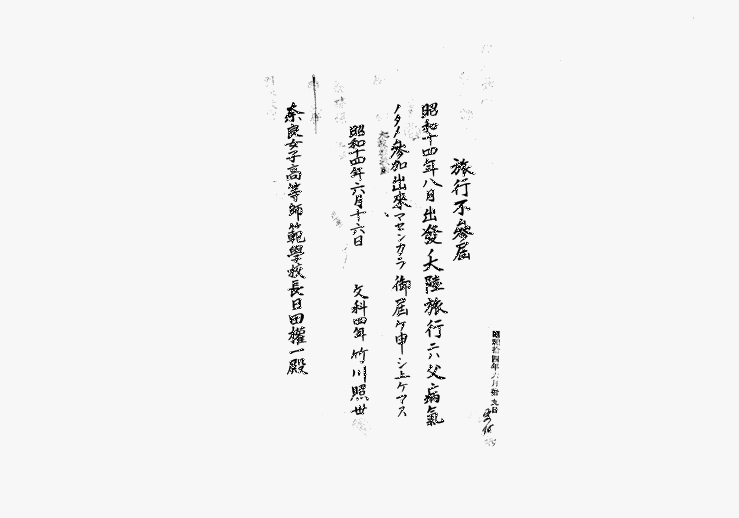 旅行不參屆
昭和十四年八月出發ノ大陸旅行ニハ父病氣
ノタメ參加出來マセンカラ御屆ケ申シ上ケマス
昭和十四年六月十六日 文科四年 竹川照世
奈良女子高等師範學校長日田權一殿
昭和拾四年六月 日